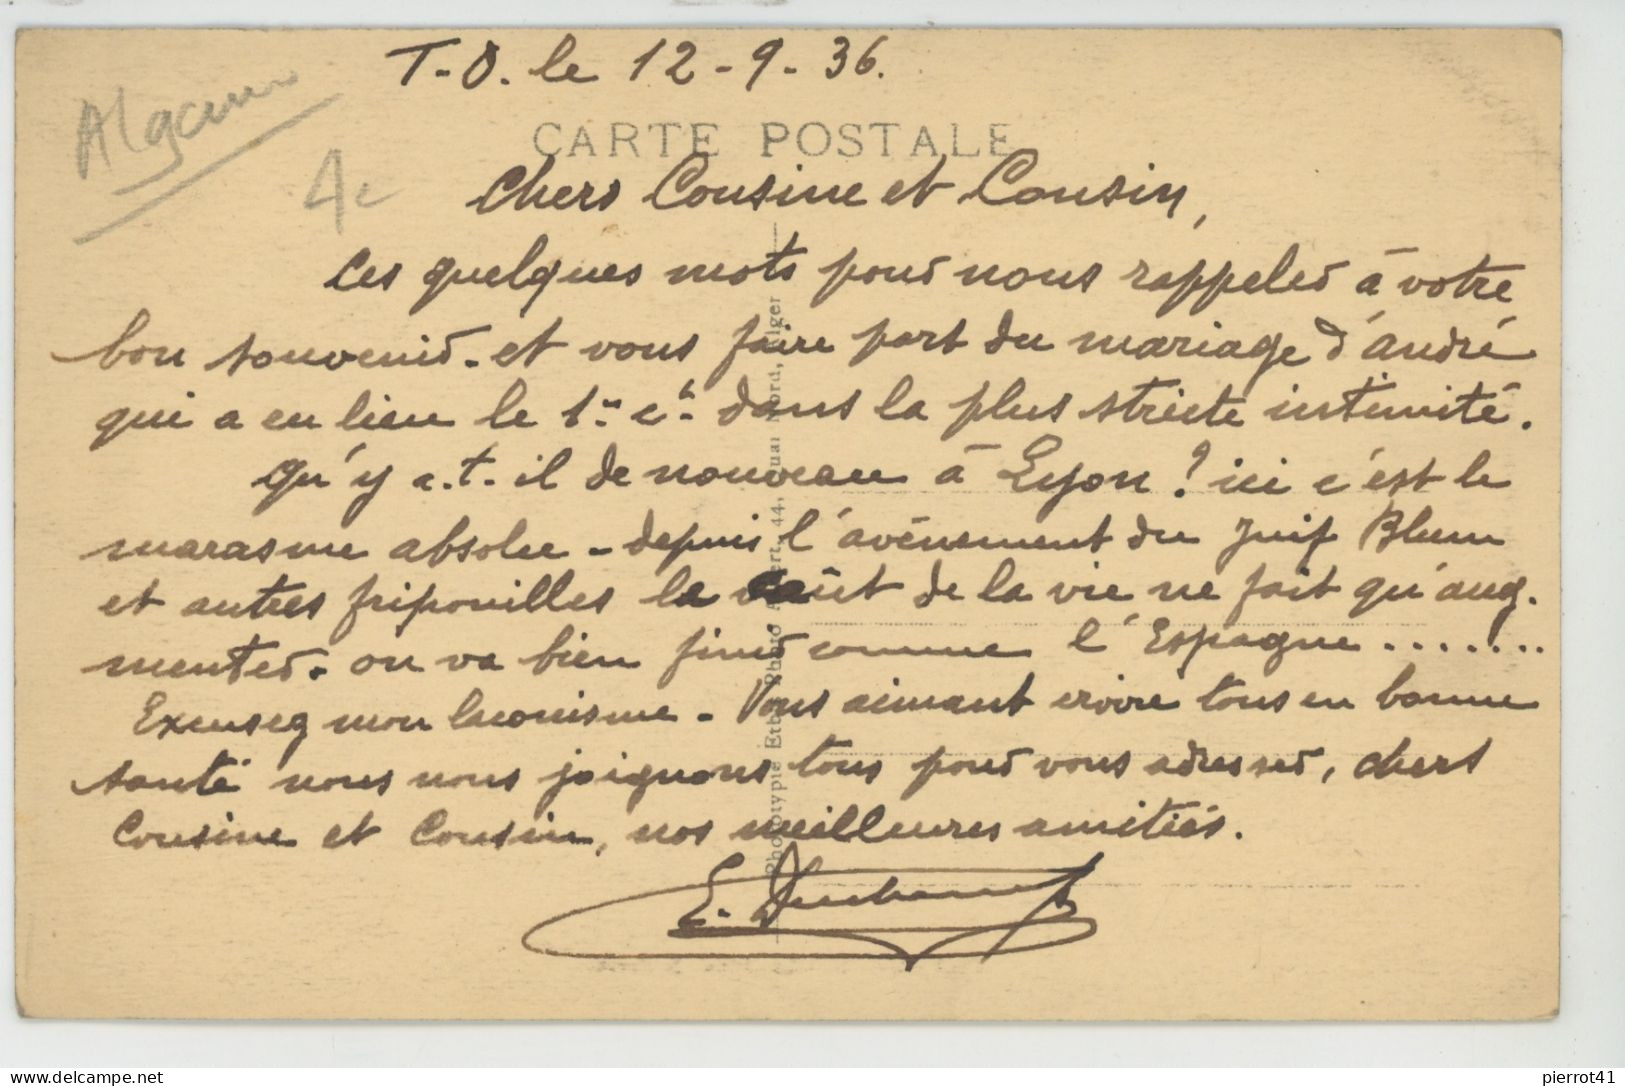 T-O. le 12-9-36.
Algérie
4e
CARTE POSTALE
Chers Cousine et Cousin,
Ces quelques mots pour nous rappeler à votre
bon souvenir - et vous faire part du mariage d'André
qui a eu lieu le 1er ct. dans la plus stricte intimité.
Qu'y a.t.il de nouveau à Lyon ? ici c'est le
marasme absolu - depuis l'avènement du Juif Blum
et autres fripouilles le coût de la vie ne fait qu'aug.
menter. on va bien finir comme l'Espagne .......
Excusez mon laconisme - Vous aimant croire tous en bonne
santé nous nous joignons tous pour vous adresser, chers
Cousine et Cousin, nos meilleures amitiés.
E.
Phototypie Etab. Photo Albert, 44, Quai Nord, Alger
pierrot41